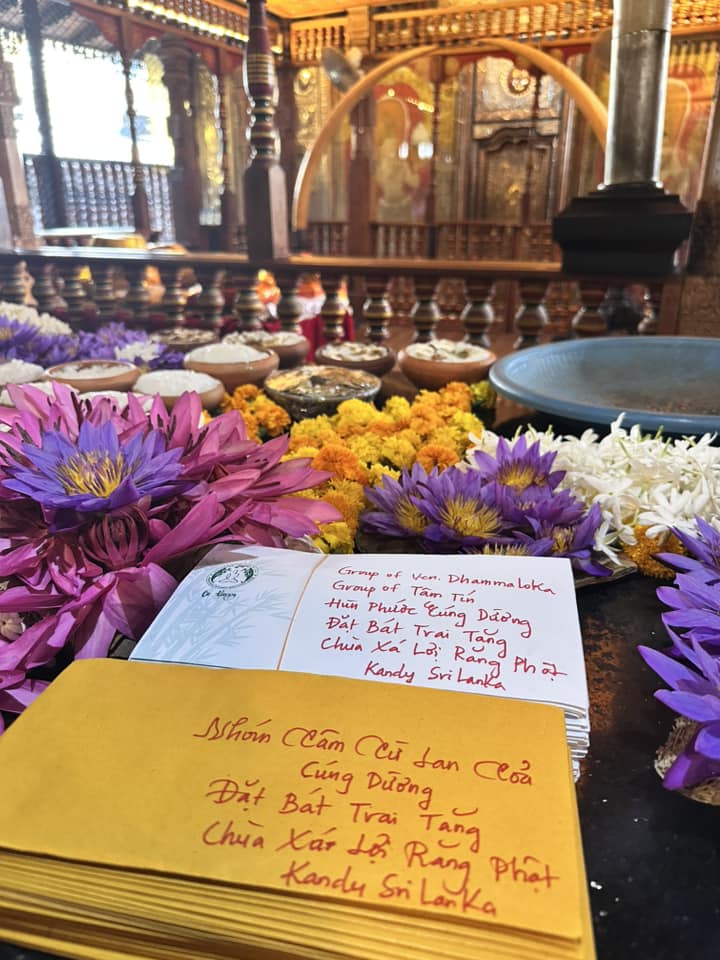 Group of Ven. Dhammaloka
Group of Tâm Tín
Hùn Phước Cúng Dường
Đặt Bát Trai Tặng
Chùa Xá Lợi Răng Phật
Kandy Sri Lanka
Nhóm Cẩm Cù Lan Cỏa
Cúng Dường
Đặt Bát Trai Tặng
Chùa Xá Lợi Răng Phật
Kandy Sri Lanka